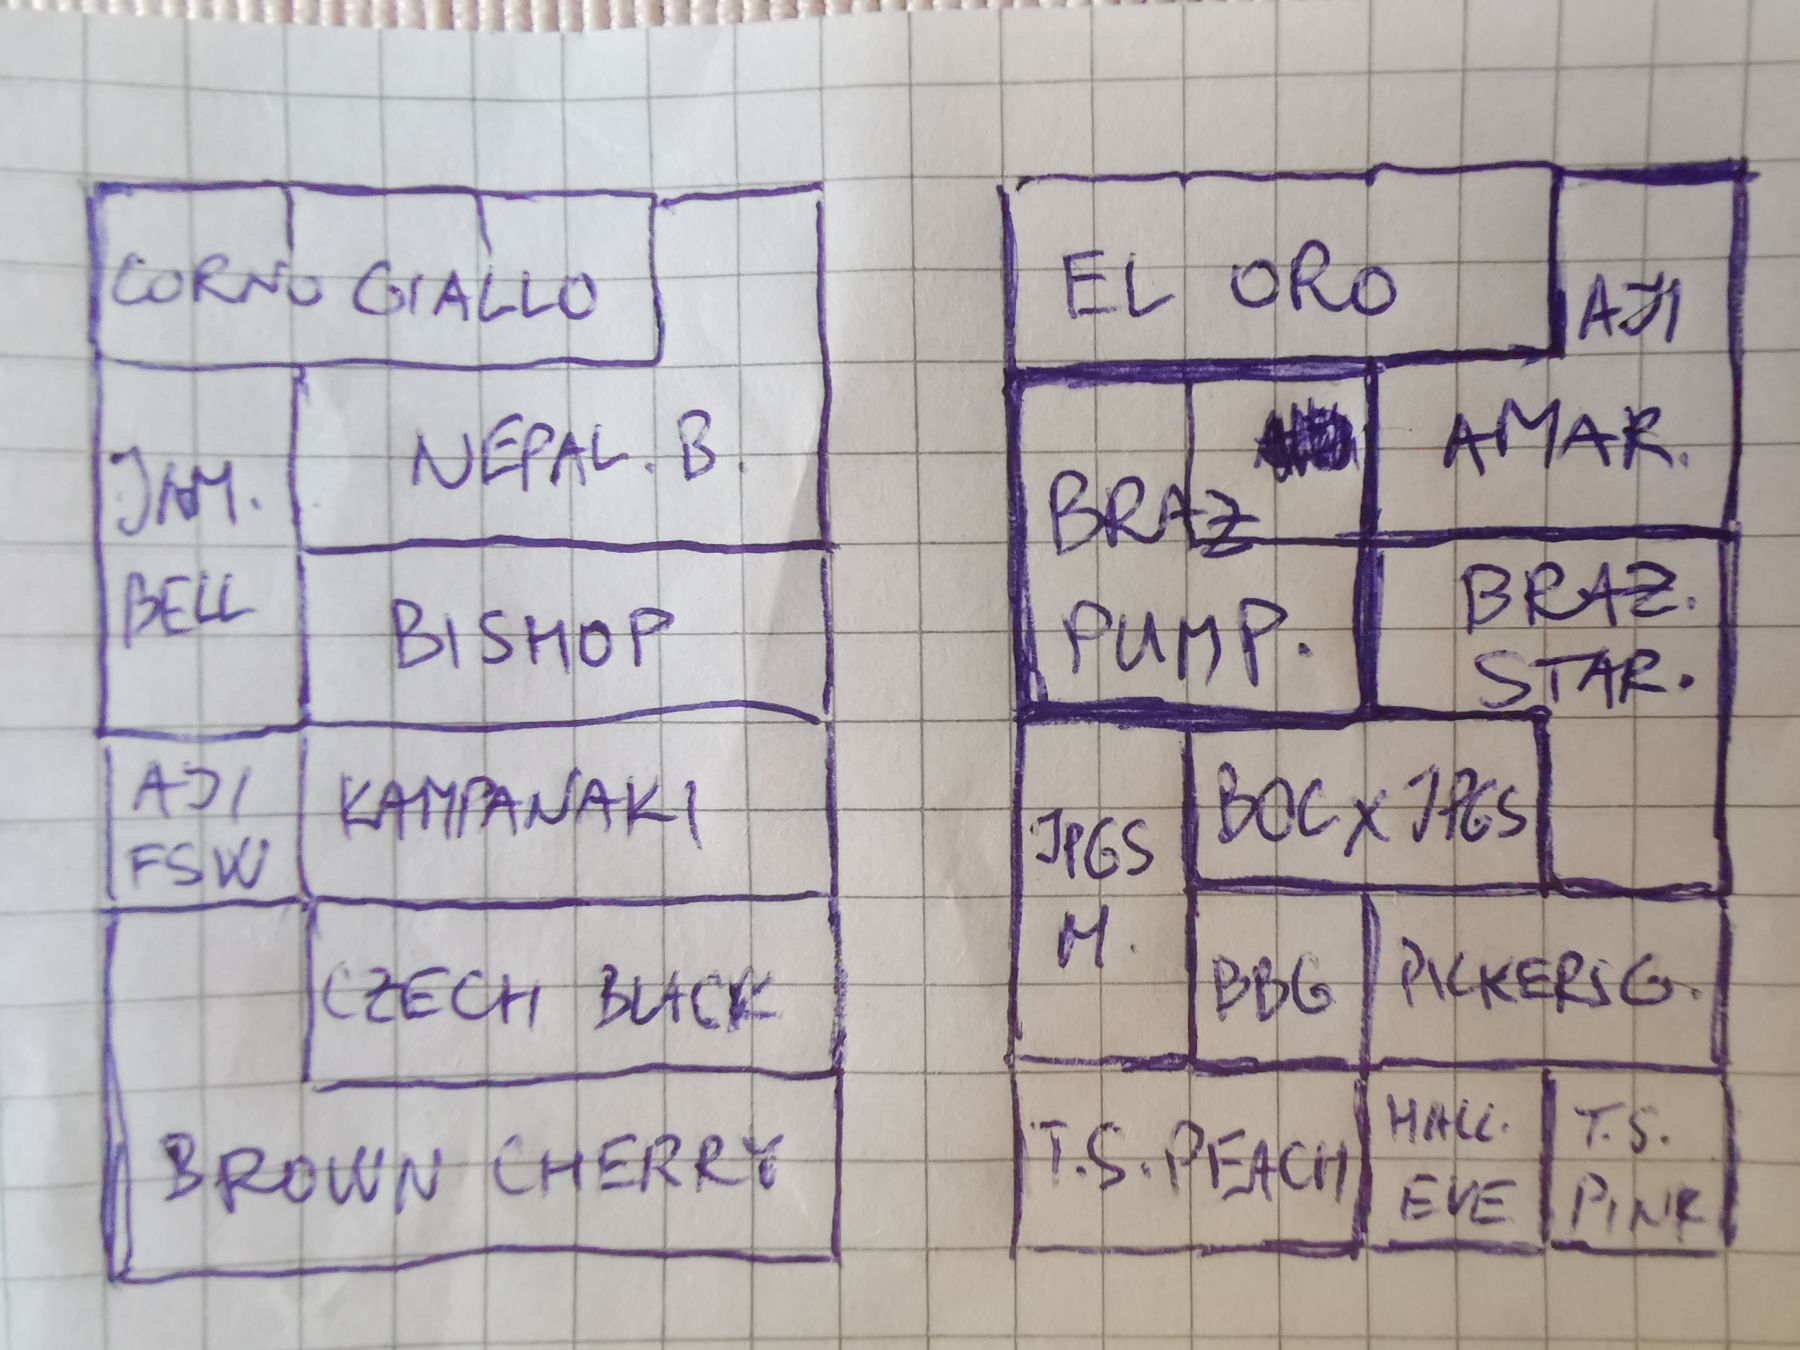 CORNO GIALLO
NEPAL. B.
JAM.
BELL
BISHOP
AJI
FSW
KAMPANAKI
CZECH BLACK
BROWN CHERRY
EL ORO
AJI
AMAR.
BRAZ
PUMP.
BRAZ.
STAR.
JPGS
M.
BOC x JPGS
BBG
PICKERSG.
T.S. PEACH
HALL.
EVE
T.S.
PINK